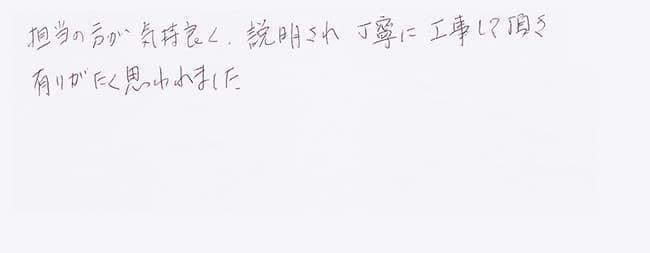 担当の方が気持良く、説明され 丁寧に工事して頂き
有りがたく思われました